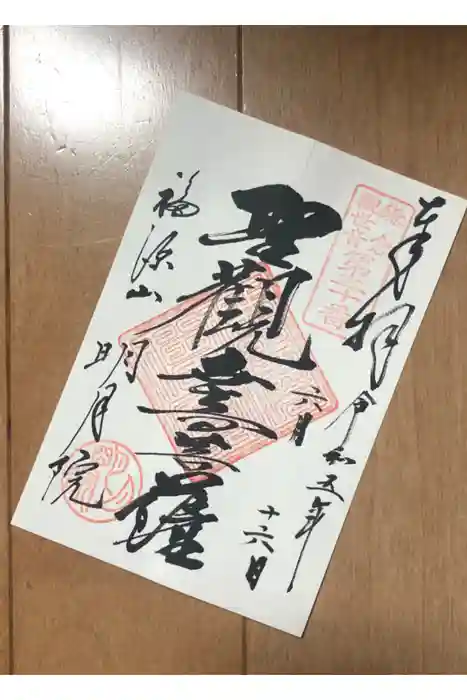 奉拝
令和五年
六月
十六日
鎌倉
觀世音
第三十番
聖觀音菩薩
福源山
明月院